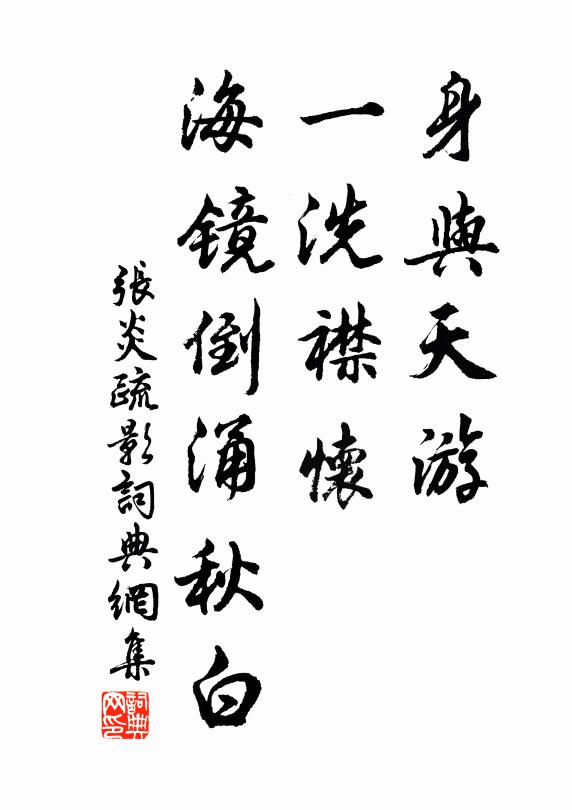 身與天游
一洗襟懷
海鏡倒涌秋白
張炎疏影詞典網集
詞典网印